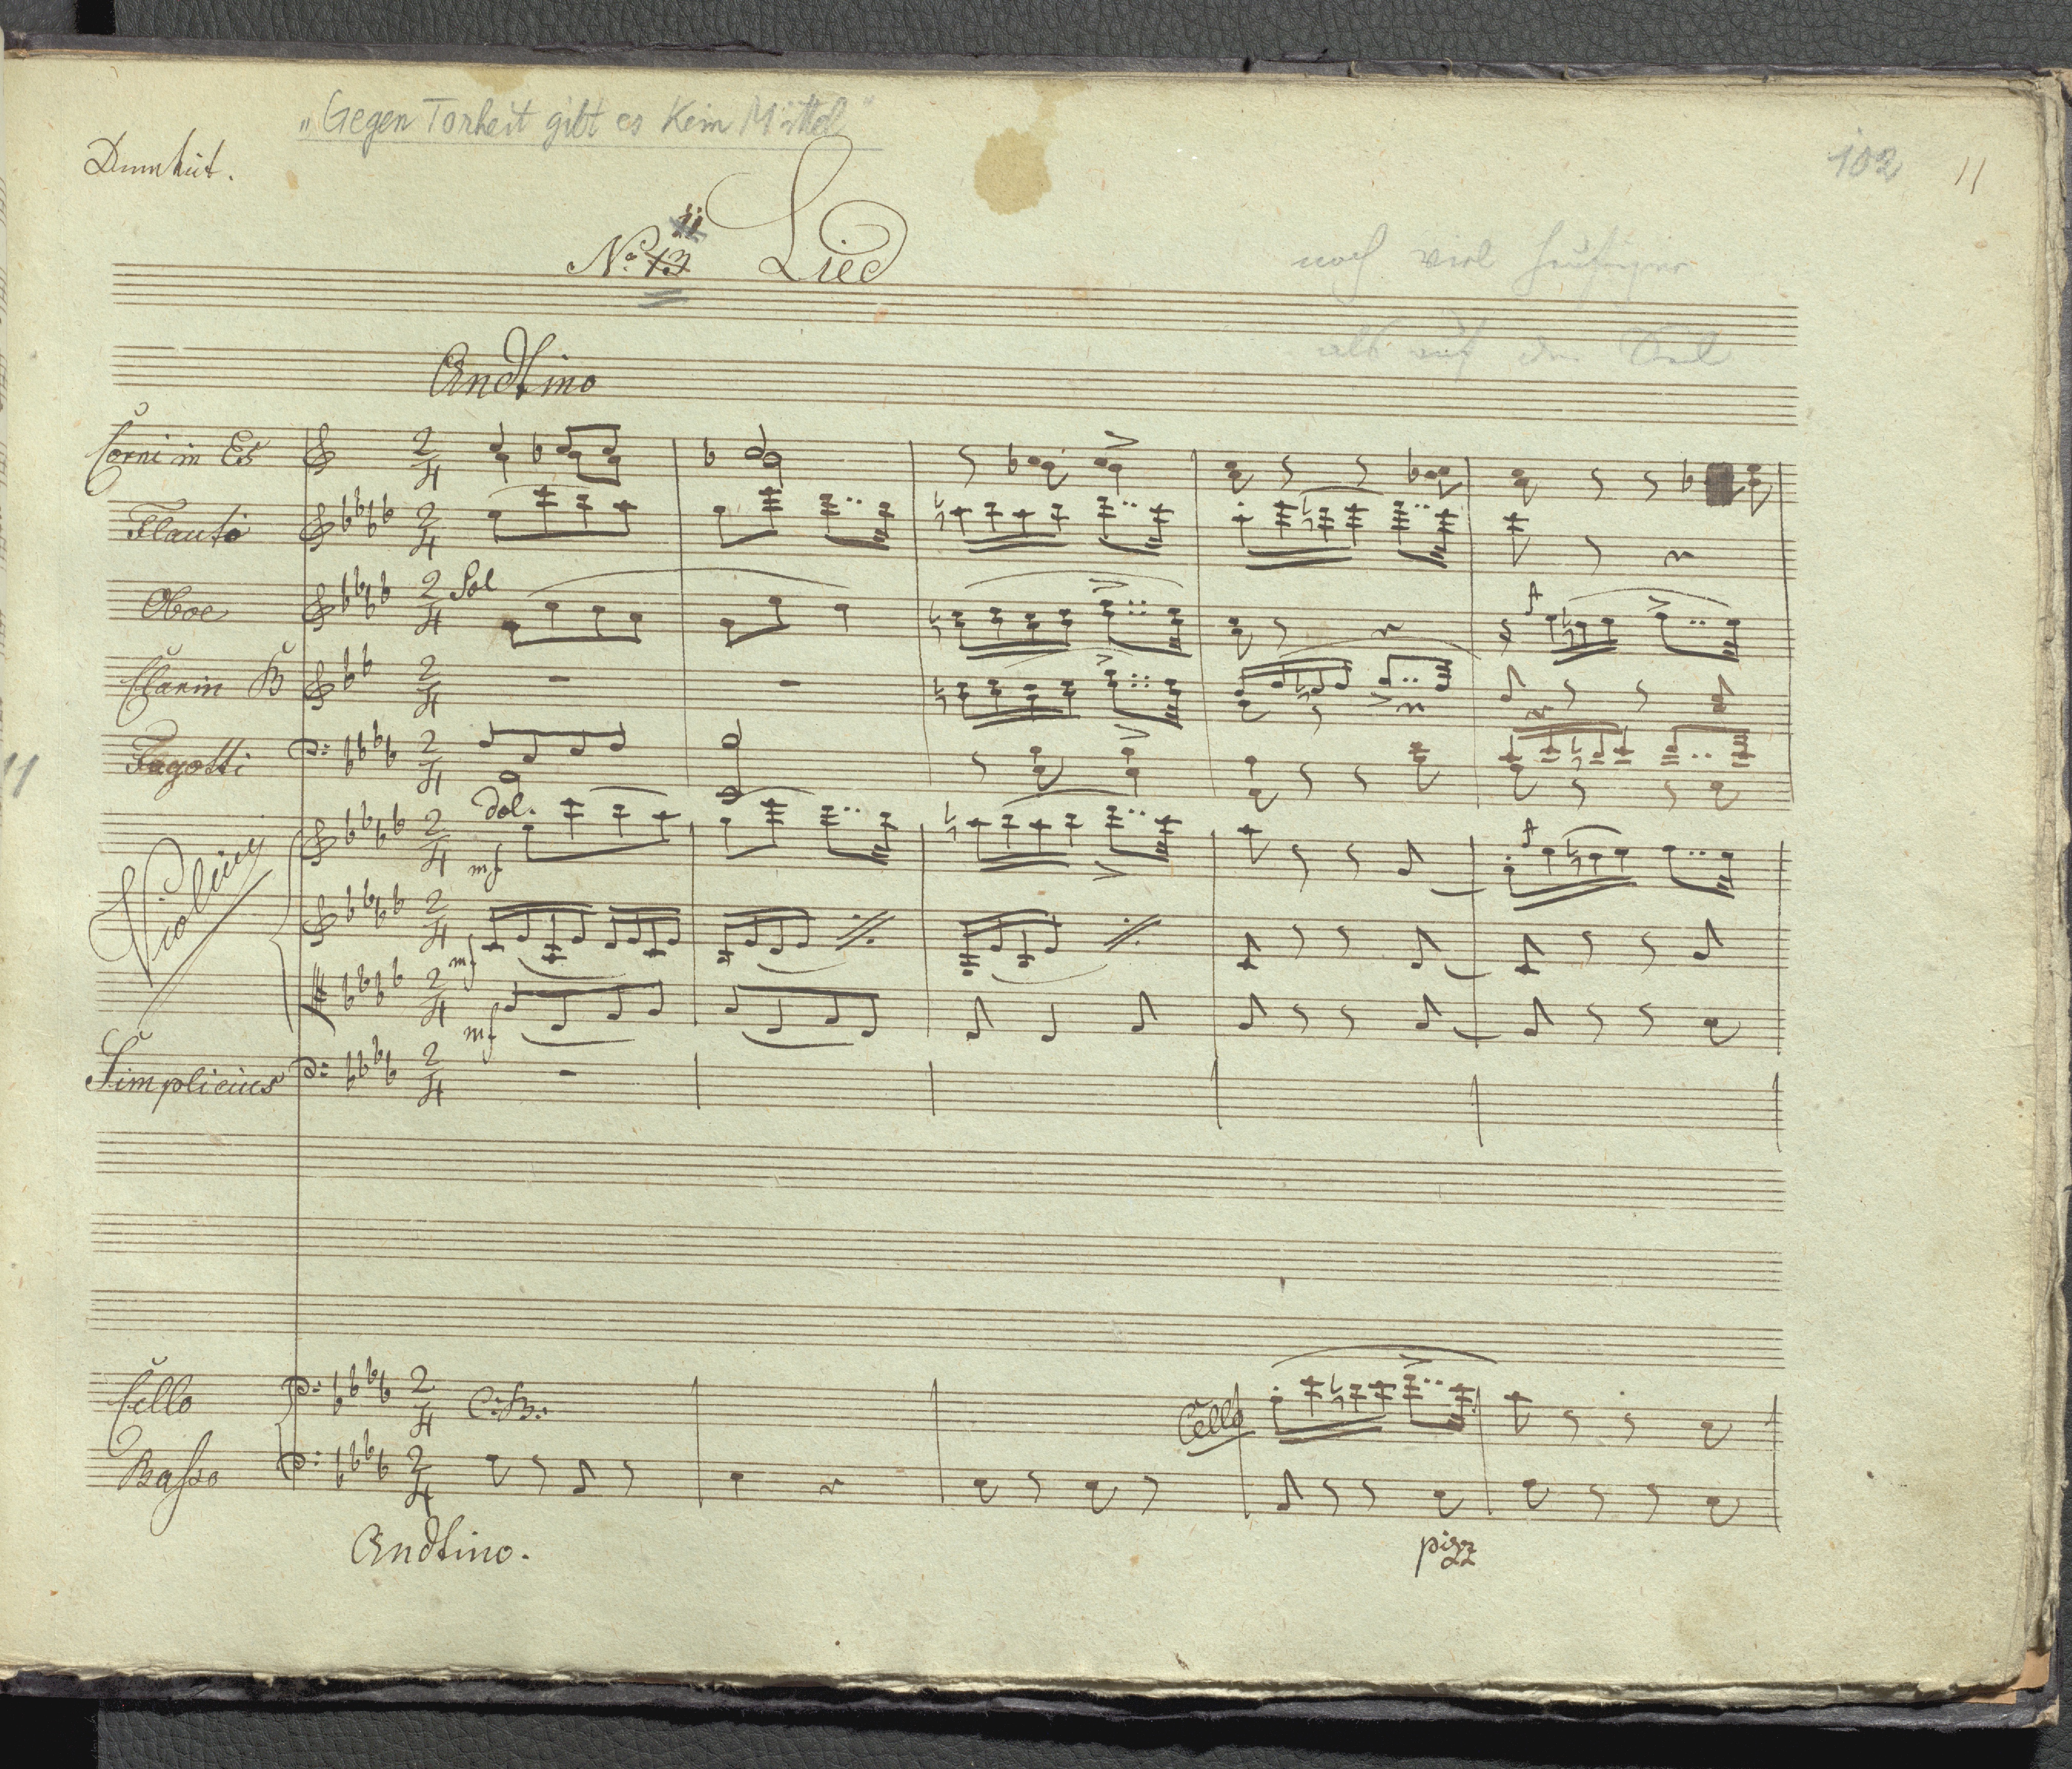 „Gegen Torheit gibt es kein Mittel"
102 11
No. 13 11 Lied
noch viel
Andtino
Corni in Es
Flauto
Oboe Sol
Clarin B
Fagotti
11
dol.
mf
Violini
mf
mf
Simplicius
Cello C:B:
Cello
Basso
pizz
Andtino.